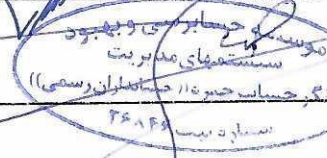 موسسه حسابرسی و بهبود
سیستمهای مدیریت
حساب خبره ((حسابداران رسمی))
شماره ثبت